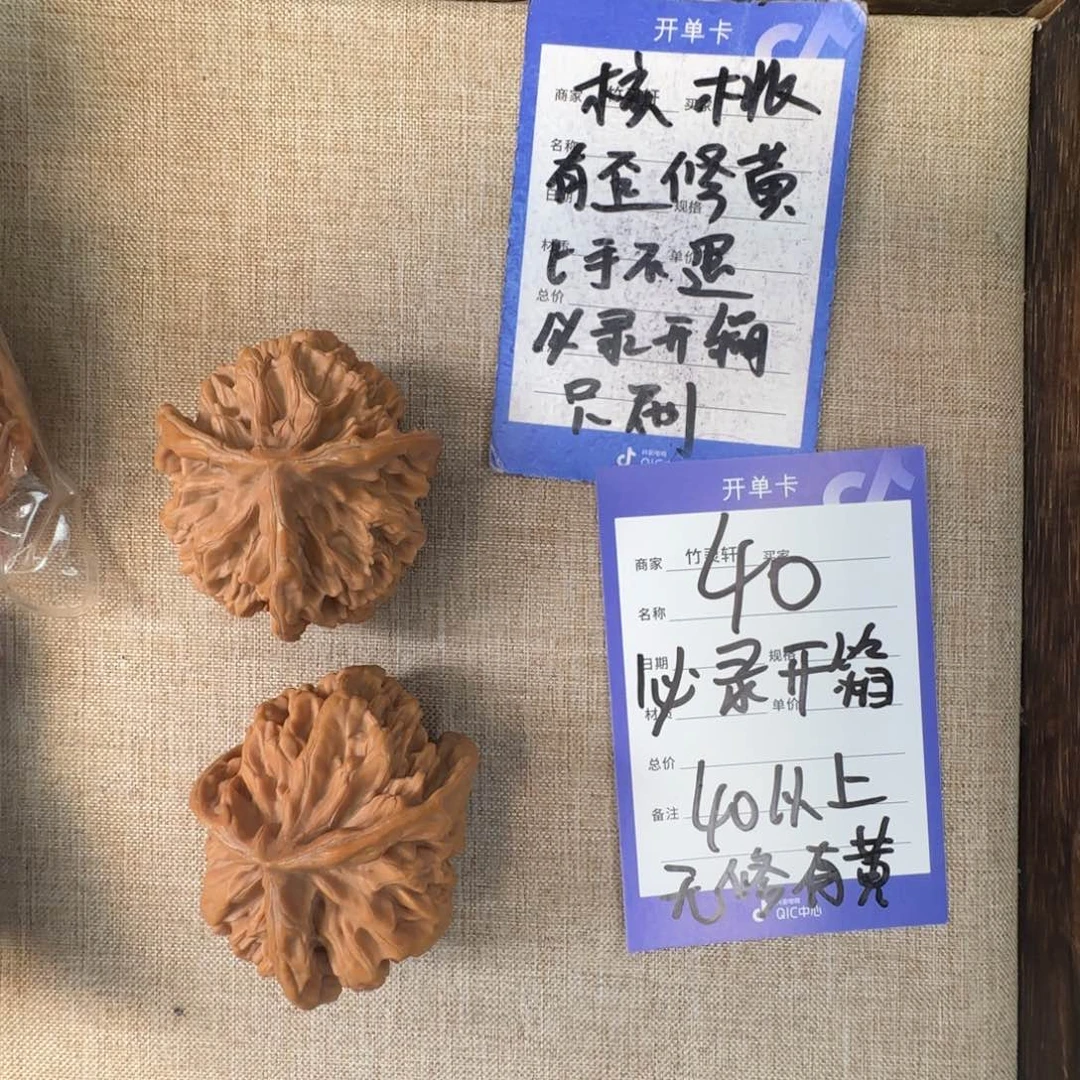 开单卡
商家
核桃
名称
有歪修黄
日期 规格
上手不退
材质 单价
总价
必录开箱
只刷
开单卡
商家 竹灵轩 买家
40
名称
日期 规格
必录开箱
材质 单价
总价
40以上
备注
无修有黄
QIC中心